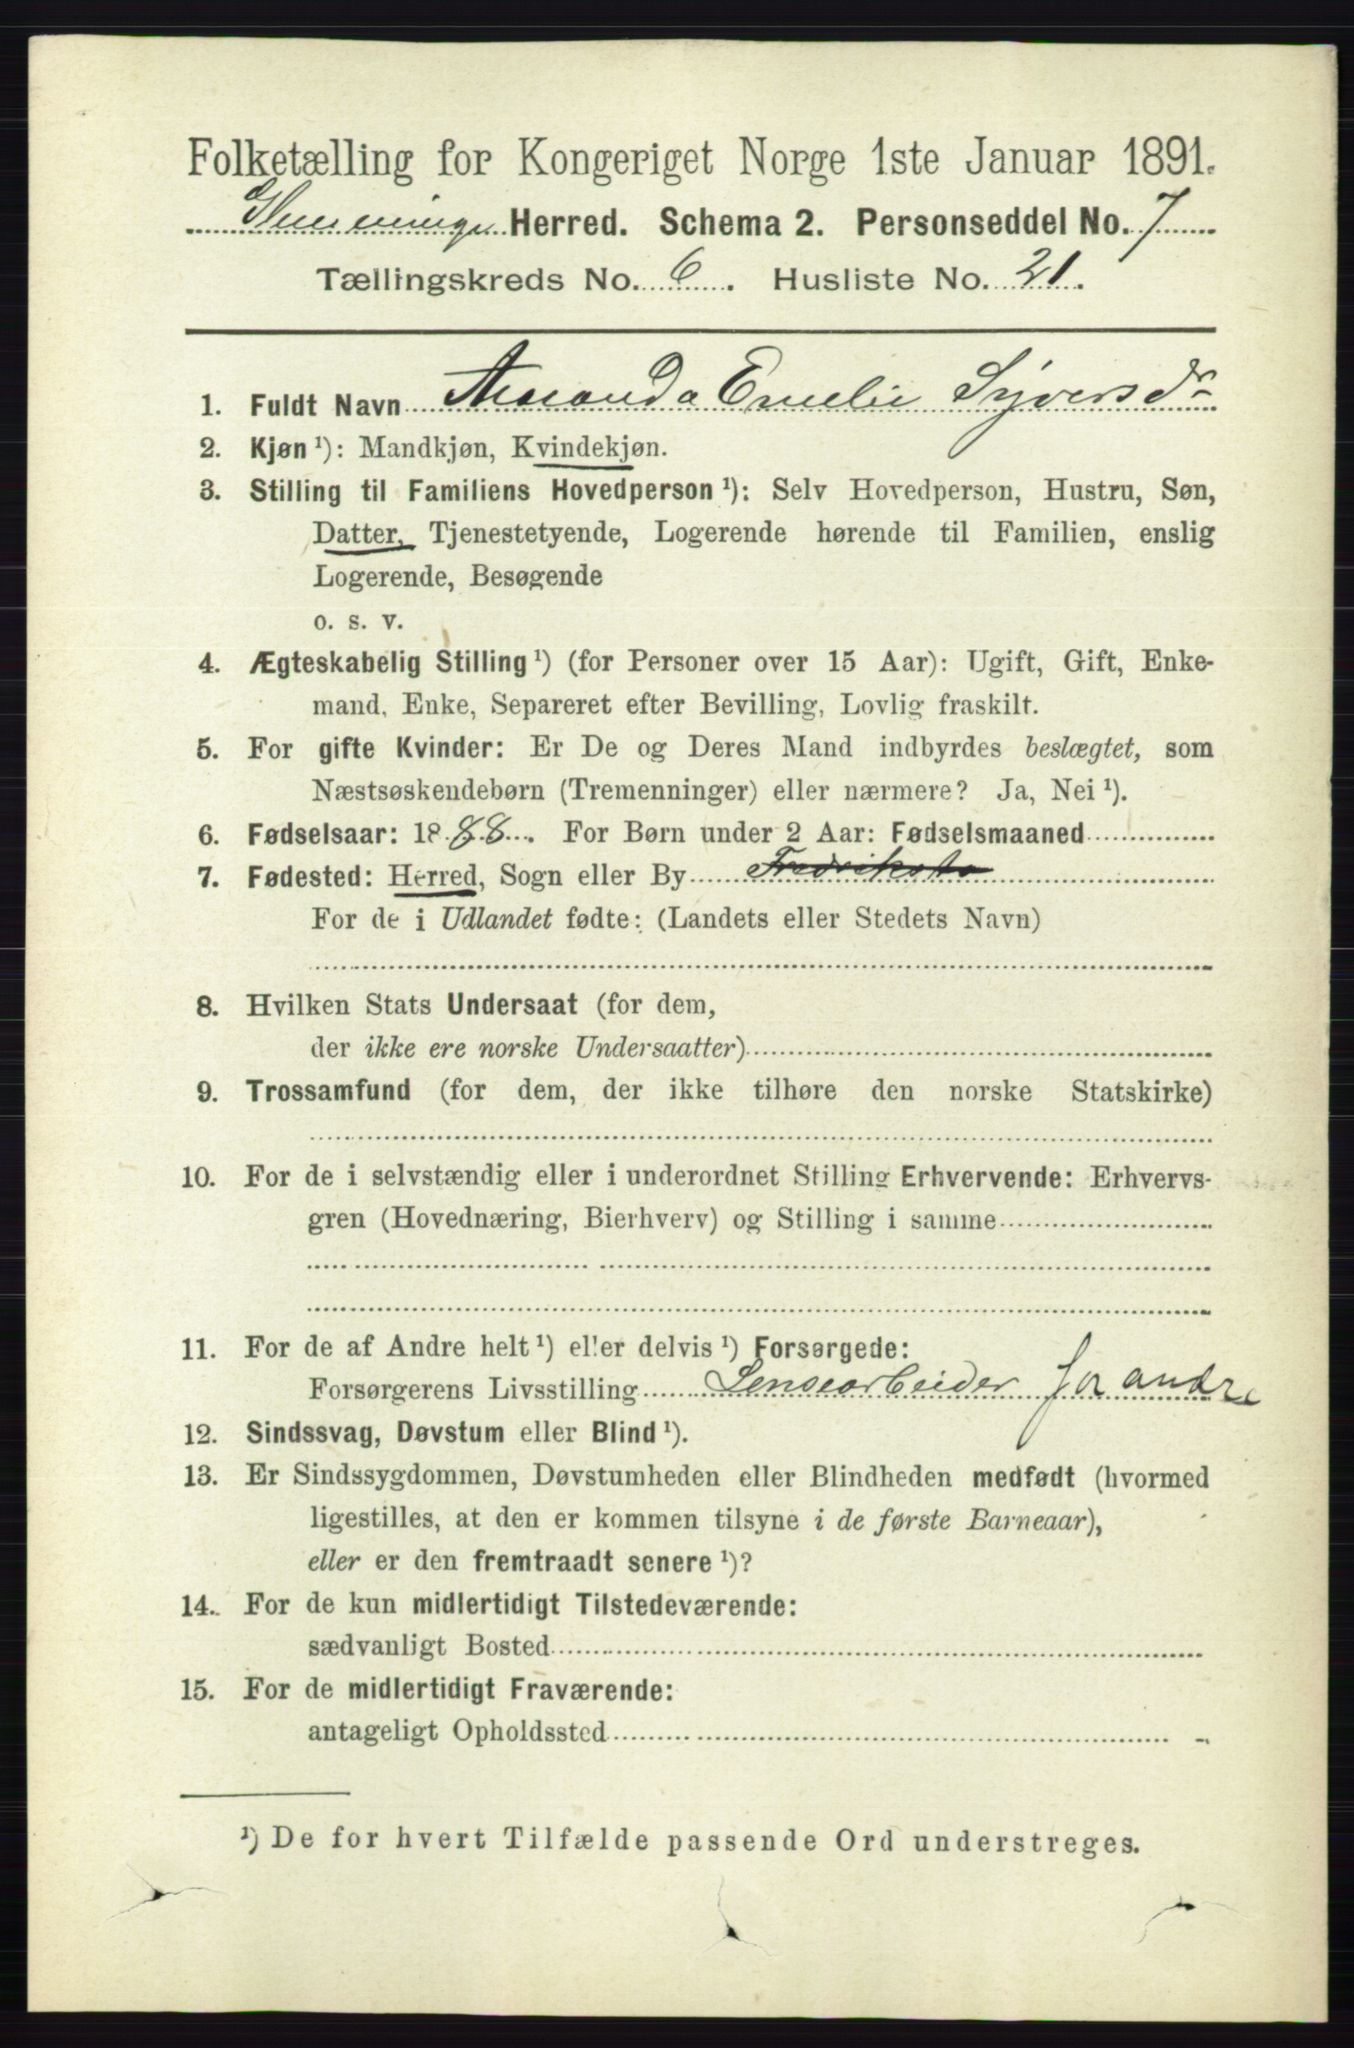 Folketælling for Kongeriget Norge 1ste Januar 1891.
Glemminge Herred. Schema 2. Personseddel No. 7
Tællingskreds No. 6. Husliste No. 21.
1. Fuldt Navn Amanda Emelie Syversdr
2. Kjøn ¹): Mandkjøn, Kvindekjøn.
3. Stilling til Familiens Hovedperson ¹): Selv Hovedperson, Hustru, Søn,
Datter, Tjenestetyende, Logerende hørende til Familien, enslig
Logerende, Besøgende
o. s. v.
4. Ægteskabelig Stilling ¹) (for Personer over 15 Aar): Ugift, Gift, Enke-
mand, Enke, Separeret efter Bevilling, Lovlig fraskilt.
5. For gifte Kvinder: Er De og Deres Mand indbyrdes beslægtet, som
Næstsøskendebørn (Tremenninger) eller nærmere? Ja, Nei ¹).
6. Fødselsaar: 1888. For Børn under 2 Aar: Fødselsmaaned
7. Fødested: Herred, Sogn eller By Fredriksta
For de i Udlandet fødte: (Landets eller Stedets Navn)
8. Hvilken Stats Undersaat (for dem,
der ikke ere norske Undersaatter)
9. Trossamfund (for dem, der ikke tilhøre den norske Statskirke)
10. For de i selvstændig eller i underordnet Stilling Erhvervende: Erhvervs-
gren (Hovednæring, Bierhverv) og Stilling i samme
11. For de af Andre helt ¹) eller delvis ¹) Forsørgede:
Forsørgerens Livsstilling Lensearbeider for andre
12. Sindssvag, Døvstum eller Blind ¹).
13. Er Sindssygdommen, Døvstumheden eller Blindheden medfødt (hvormed
ligestilles, at den er kommen tilsyne i de første Barneaar),
eller er den fremtraadt senere ¹)?
14. For de kun midlertidigt Tilstedeværende:
sædvanligt Bosted
15. For de midlertidigt Fraværende:
antageligt Opholdssted
¹) De for hvert Tilfælde passende Ord understreges.